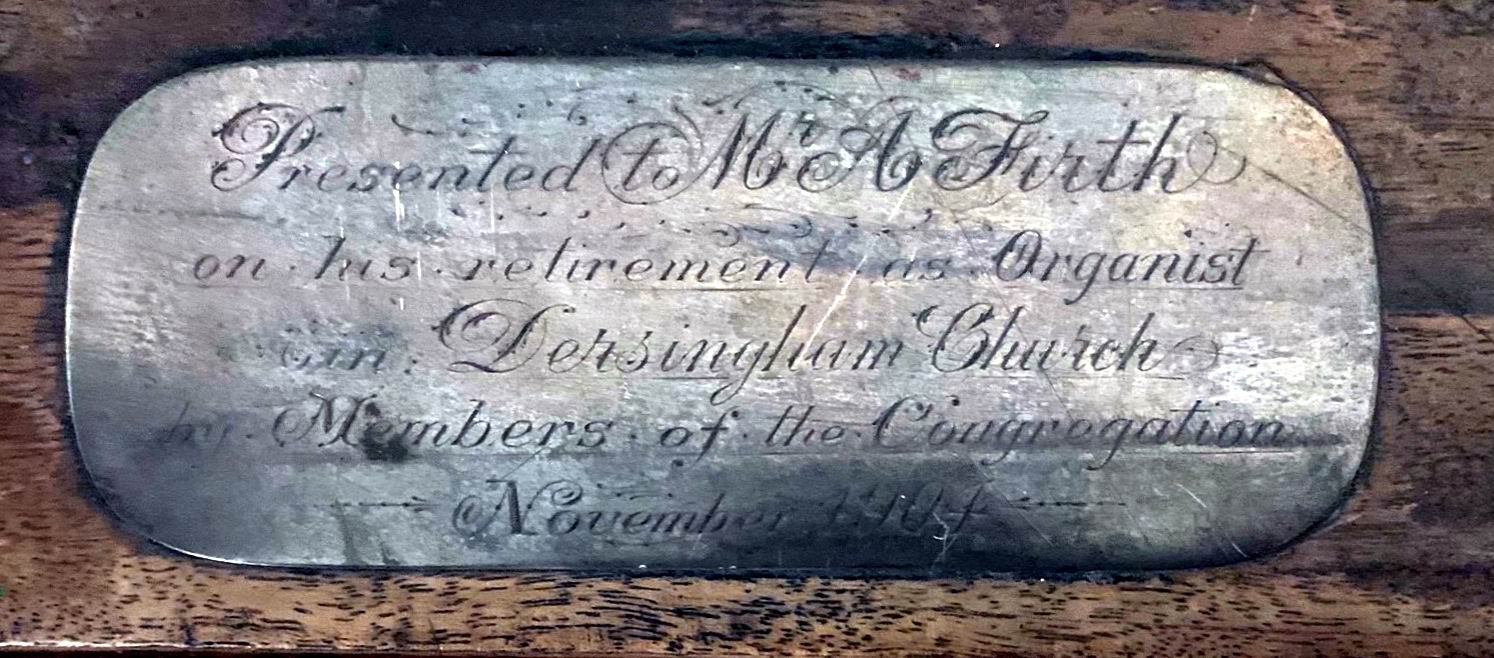 Presented to Mr A Firth
on his retirement as Organist
in Dersingham Church
by Members of the Congregation
November 1904